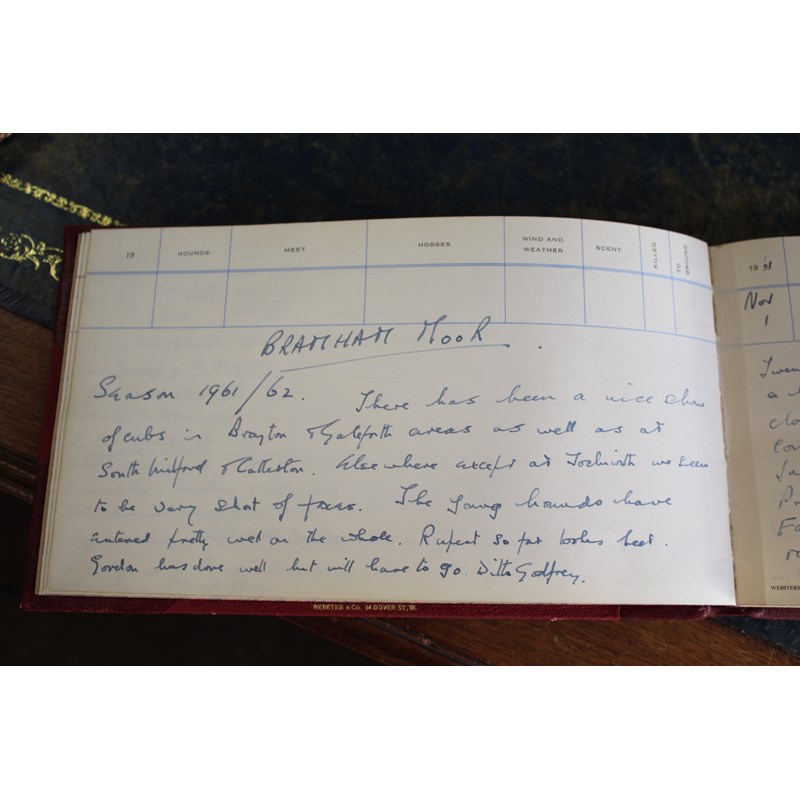 19 HOUNDS MEET HORSES WIND AND WEATHER SCENT KILLED TO GROUND
BRAMHAM MOOR.
Season 1961/62. There has been a nice show
of cubs in Brayton & Gateforth areas as well as at
South Milford & Catterton. Elsewhere except at Tockwith we seem
to be very short of foxes. The young hounds have
entered pretty well on the whole. Rupert so far looks best.
Gordon has done well but will have to go. Ditto Godfrey.
WEBSTER & CO. 14 DOVER ST, W.
19 61
Nov
1
a